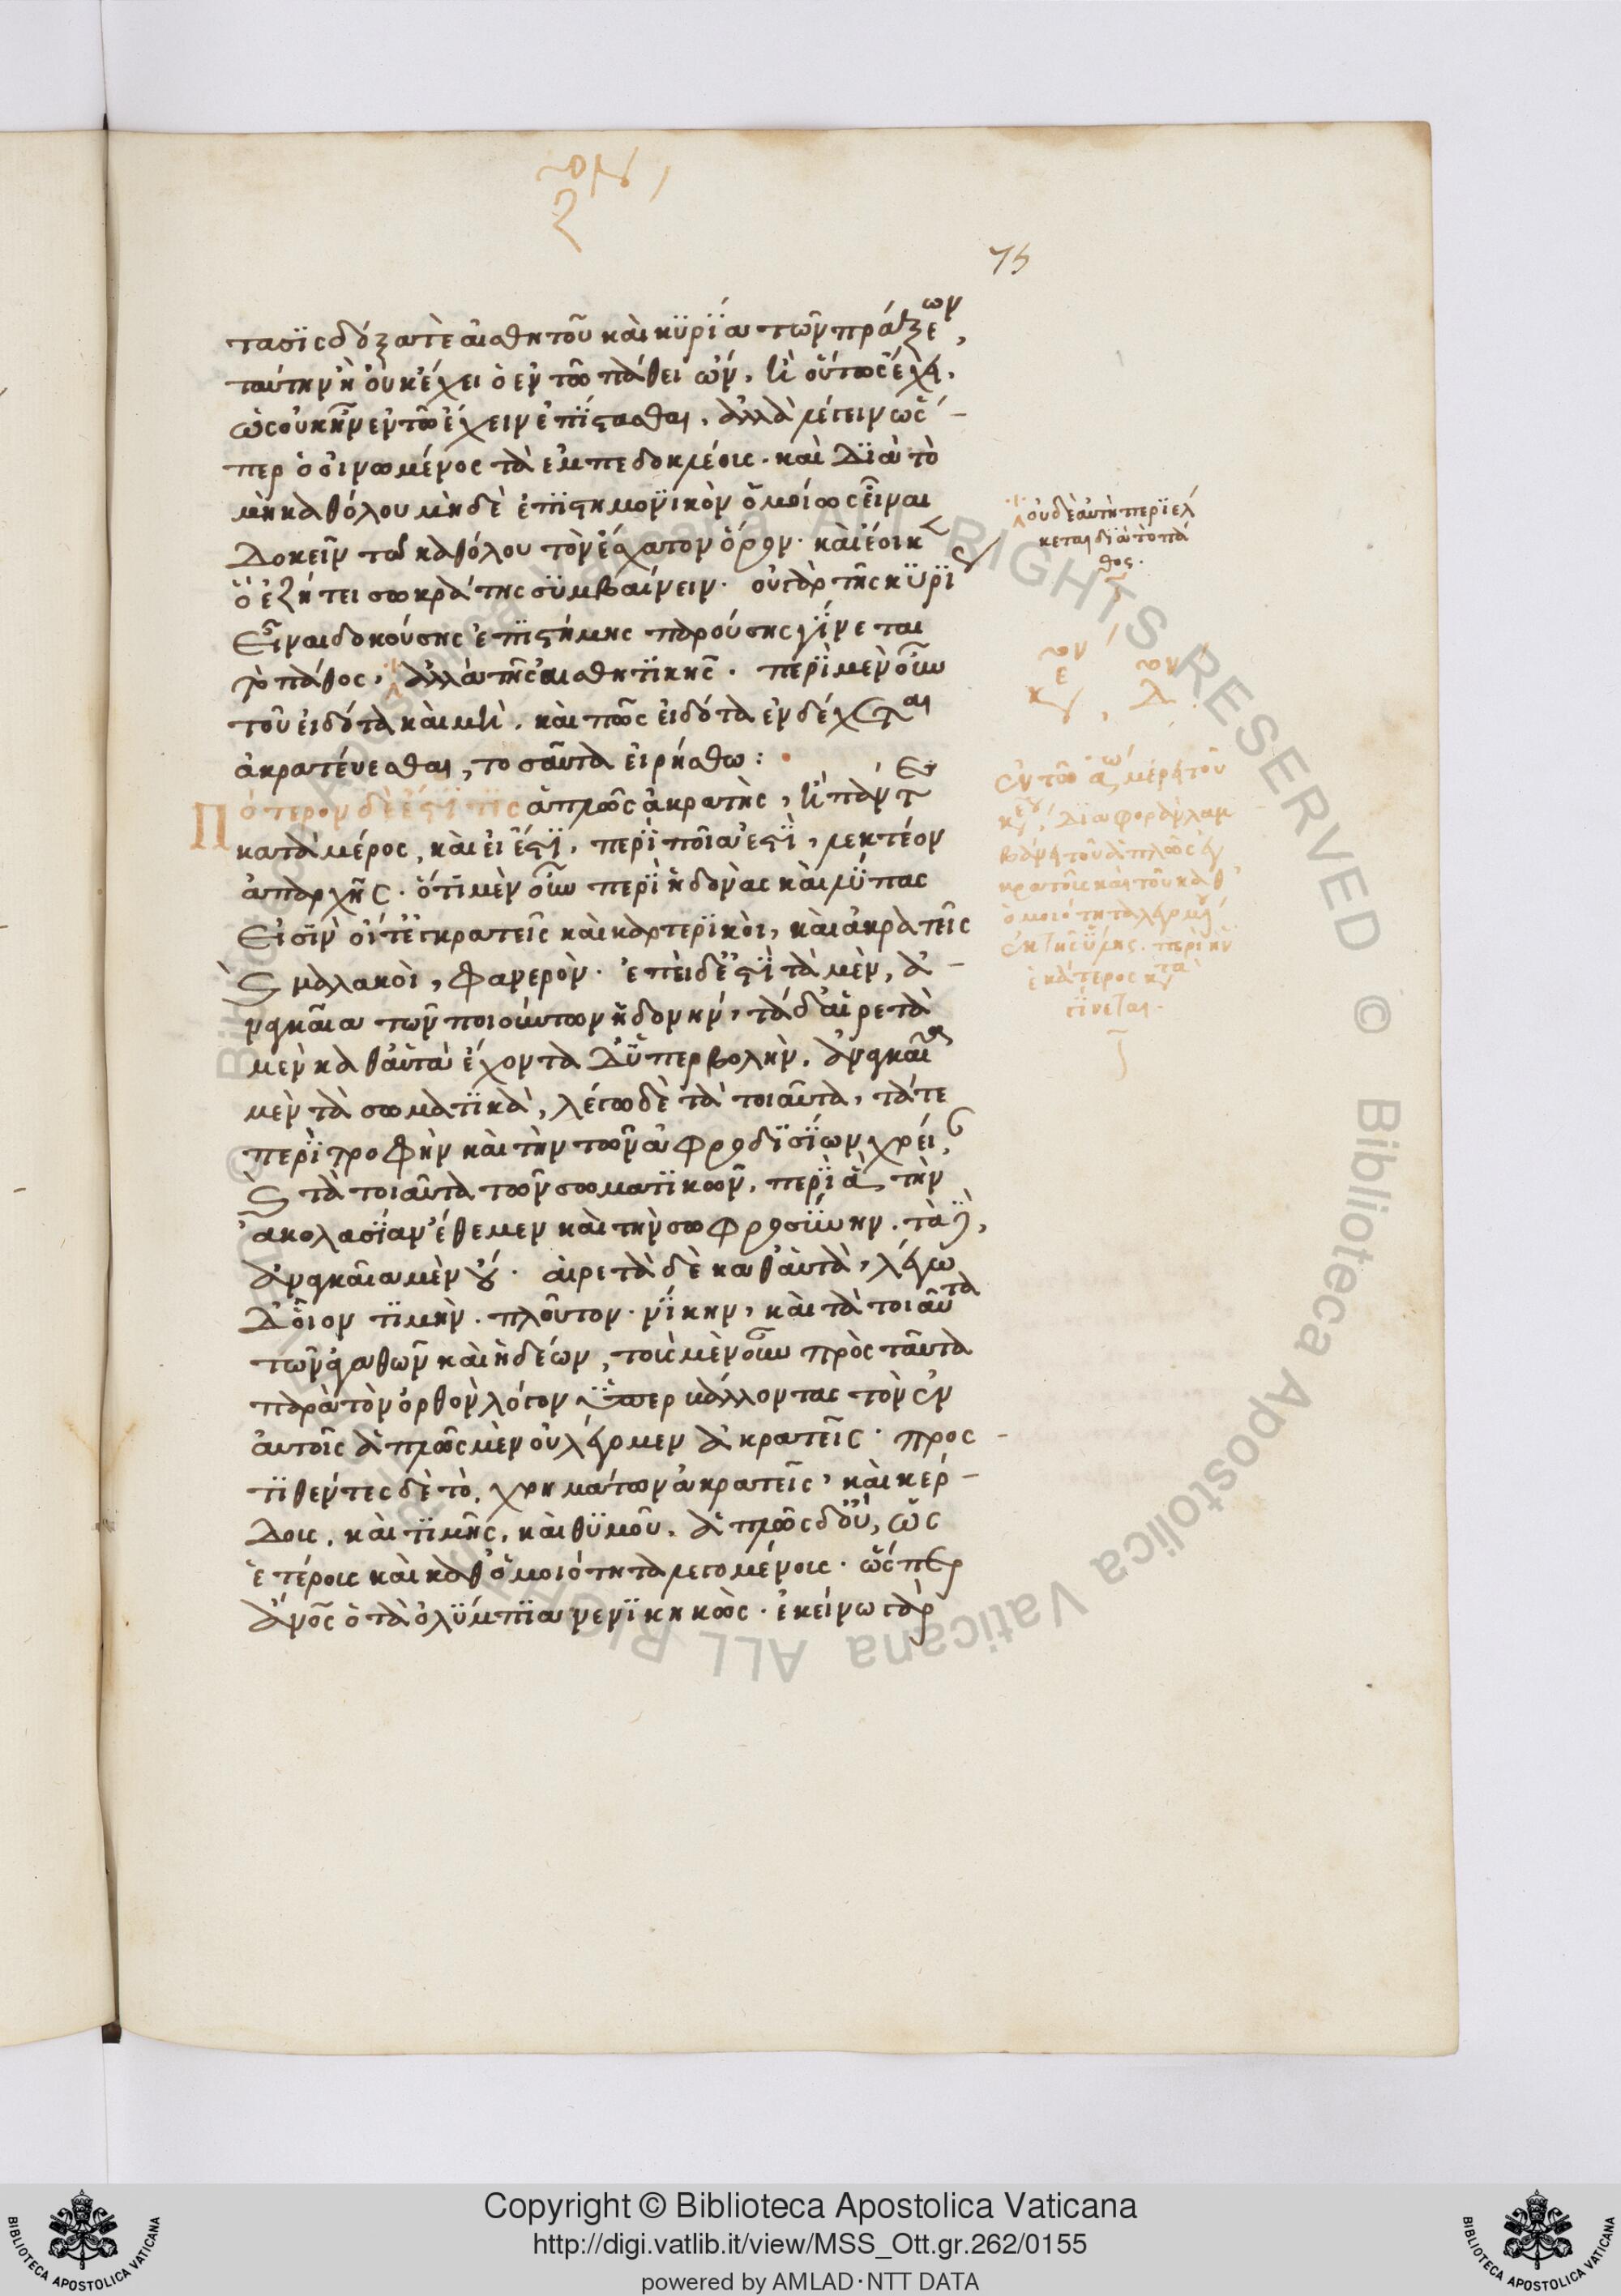 75
τασϊς δόξα τὲ αἰσθητοῦ καὶ κϋρΐα τῶν πράξεων,
ταύτην ἢ οὐκ ἔχει ὁ ἐν τῶ πάθει ὤν, ἢ οὕτως ἔχει,
ὡς οὐκ ἦν ἐν τῶ ἔχειν ἐπΐστασθαι, ἀλλὰ λέγειν ὥσ-
περ ὁ οἰνωμένος τὰ ἐμπεδοκλέους. καὶ Δϊὰ τὸ
μὴ καθόλου μὴδὲ ἐπϊστημονϊκὸν ὁμοίως εἶναι
Δοκεῖν τῶ καθόλου τὸν ἔσχατον ὅρον. καὶ ἔοικεν
ὃ ἐζήτει σωκράτης σϋμβαίνειν. οὐ γὰρ τῆς κϋρΐως
Εἶναι δοκούσης ἐπϊστήμης παρούσης γΐνεται
τὸ πάθος, ἀλλὰ τῆς αἰσθητϊκῆς. περῒ μὲν οὖν
τοῦ εἰδότα καὶ μὴ, καὶ πῶς εἰδότα ἐνδέχεται
ἀκρατεύεσθαι, τοσαῦτα εἰρήσθω:
Πότερον δὲ ἐστΐ τϊς ἁπλῶς ἀκρατὴς, ἢ πάντες
κατὰ μέρος, καὶ εἰ ἔστϊ, περῒ ποῖα ἐστῒ, λεκτέον
ἀπαρχῆς. ὅτϊ μὲν οὖν περῒ ἡδονὰς καὶ λΰπας
Εἰσῒν οἵ τ' ἐγκρατεῖς καὶ καρτερϊκοὶ, καὶ ἀκρατεῖς
καὶ μαλακοὶ, φανερὸν. ἐπεὶ δ' ἐστῒ τὰ μὲν, ἀ-
ναγκαῖα τῶν ποιούντων ἡδονήν, τὰ δ' αἱρετὰ
μὲν καθ' αὑτὰ ἔχοντα Δ' ϋπερβολὴν, ἀναγκαῖα
μὲν τὰ σωματϊκὰ, λέγω δὲ τὰ τοιαῦτα, τά τε
περῒ τροφὴν καὶ τὴν τῶν ἀφροδϊσΐων χρείαν,
καὶ τὰ τοιαῦτα τῶν σωματϊκῶν, περῒ ἃ τὴν
ἀκολασΐαν ἔθεμεν καὶ τὴν σωφροσΰνην. τὰ δ',
ἀναγκαῖα μὲν οὐ. αἱρετὰ δὲ καθ' αὑτὰ, λέγω
Δ' οἷον τϊμὴν. πλοῦτον. νΐκην, καὶ τὰ τοιαῦτα
τῶν ἀγαθῶν καὶ ἡδέων, τοὺς μὲν οὖν πρὸς ταῦτα
παρὰ τὸν ὀρθὸν λόγον ϋπερβάλλοντας τὸν ἐν
αὑτοῖς ἁπλῶς μὲν οὐ λέγομεν ἀκρατεῖς. προς-
τϊθέντες δὲ τὸ, χρημάτων ἀκρατεῖς, καὶ κέρ-
Δους, καὶ τϊμῆς, καὶ θϋμοῦ, ἁπλῶς δ' οὔ, ὡς
ἑτέρους καὶ καθ' ὁμοιότητα λεγομένους. ὥσπερ
ἄνος ὁ τὰ ὀλΰμπϊα νενϊκηκὼς. ἐκείνω γὰρ
οὐδὲ αὐτὴ περϊέλ
κεται δϊὰ τὸ πά
θος.
ἐν τῶ α μέρει τοῦ
κε, Δϊαφορὰν λαμ
βάνει τοῦ ἁπλῶς ἀ
κρατοῦς καὶ τοῦ καθ'
ὁμοιότητα λεγομέ
ἑκάτερος κατα
γΐνεται.
Copyright © Biblioteca Apostolica Vaticana
http://digi.vatlib.it/view/MSS_Ott.gr.262/0155
powered by AMLAD·NTT DATA
BIBLIOTECA APOSTOLICA VATICANA
BIBLIOTECA APOSTOLICA VATICANA
© Biblioteca Apostolica Vaticana ALL RIGHTS RESERVED © Biblioteca Apostolica Vaticana ALL RIGHTS RESERVED